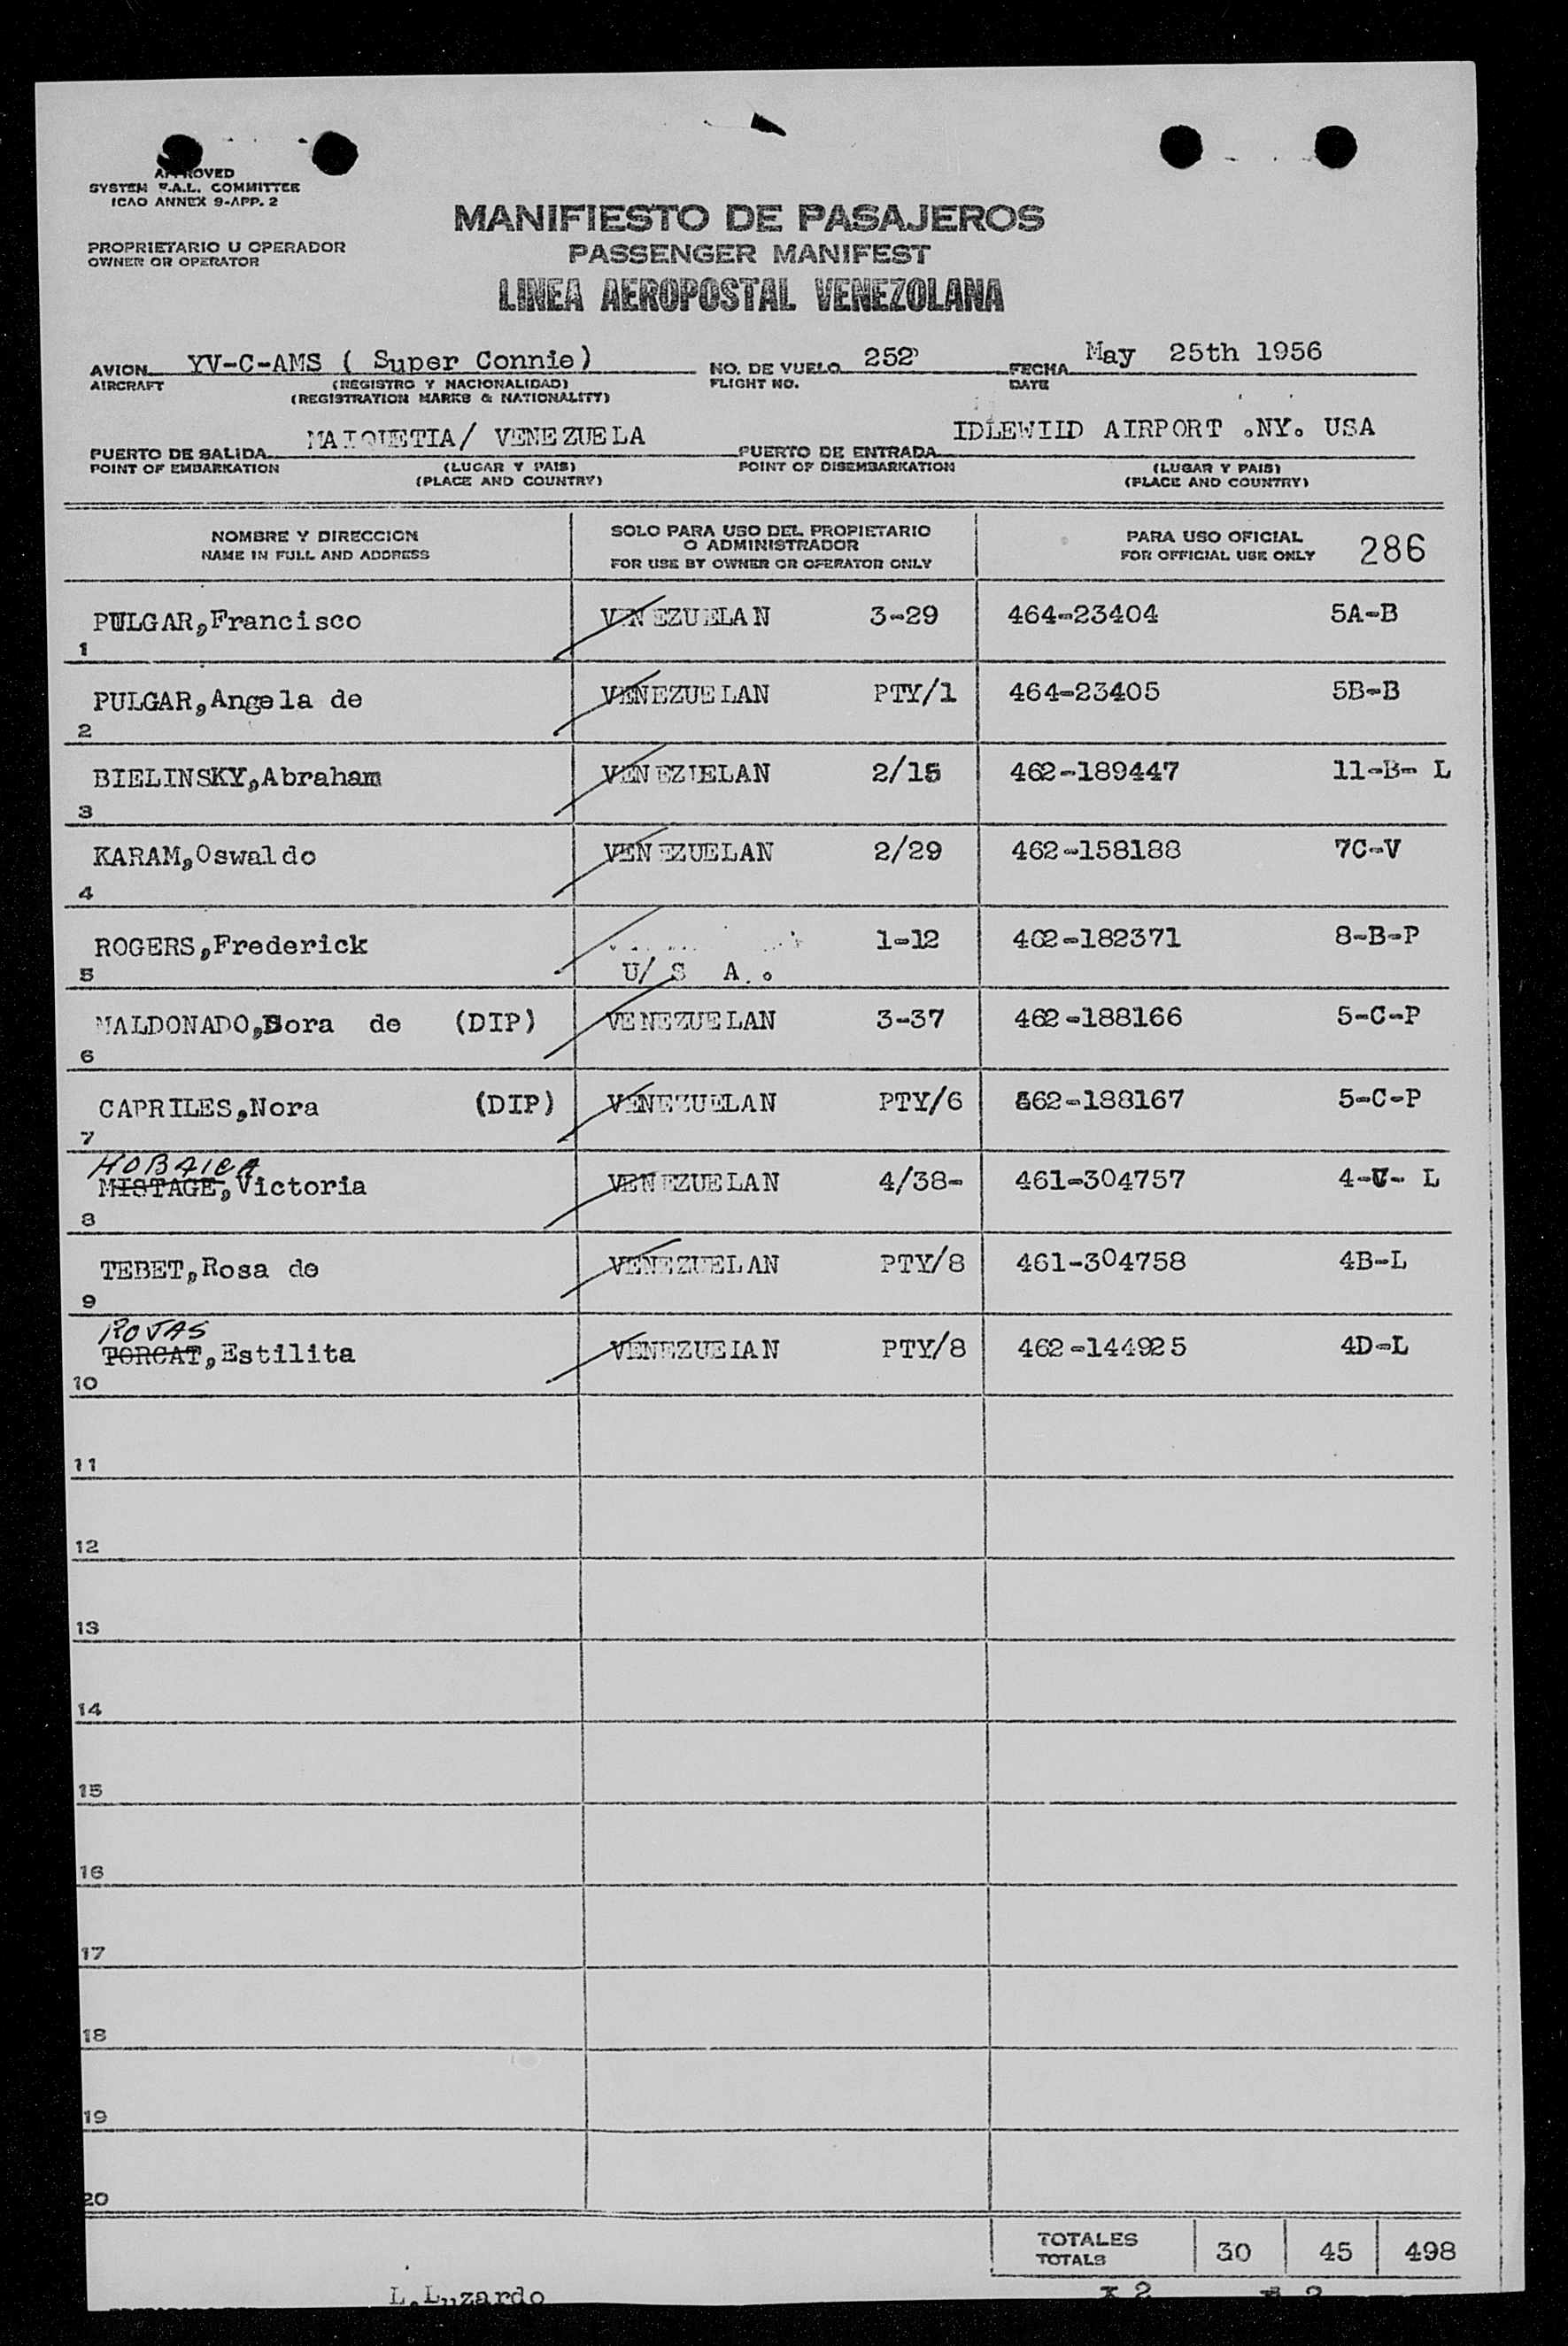 APPROVED
SYSTEM F.A.L. COMMITTEE
ICAO ANNEX 9-APP. 2
MANIFIESTO DE PASAJEROS
PROPRIETARIO U OPERADOR
OWNER OR OPERATOR
PASSENGER MANIFEST
LINEA AEROPOSTAL VENEZOLANA
AVION YV-C-AMS ( Super Connie) NO. DE VUELO 252 FECHA May 25th 1956
AIRCRAFT (REGISTRO Y NACIONALIDAD) FLIGHT NO. DATE
(REGISTRATION MARKS & NATIONALITY)
PUERTO DE SALIDA MAIQUETIA/ VENEZUELA PUERTO DE ENTRADA IDLEWILD AIRPORT .NY. USA
POINT OF EMBARKATION (LUGAR Y PAIS) POINT OF DISEMBARKATION (LUGAR Y PAIS)
(PLACE AND COUNTRY) (PLACE AND COUNTRY)
NOMBRE Y DIRECCION SOLO PARA USO DEL PROPIETARIO PARA USO OFICIAL 286
O ADMINISTRADOR
NAME IN FULL AND ADDRESS FOR USE BY OWNER OR OPERATOR ONLY FOR OFFICIAL USE ONLY
PULGAR,Francisco VENEZUELAN 3-29 464-23404 5A-B
1
PULGAR,Angela de VENEZUELAN PTY/1 464-23405 5B-B
2
BIELINSKY,Abraham VENEZUELAN 2/15 462-189447 11-B- L
3
KARAM,Oswaldo VENEZUELAN 2/29 462-158188 7C-V
4
ROGERS,Frederick 1-12 462-182371 8-B-P
5 U/ S A.
MALDONADO,Dora de (DIP) VENEZUELAN 3-37 462-188166 5-C-P
6
CAPRILES,Nora (DIP) VENEZUELAN PTY/6 462-188167 5-C-P
7
HOBAICA
MISTAGE,Victoria VENEZUELAN 4/38- 461-304757 4-C- L
8
TEBET,Rosa de VENEZUELAN PTY/8 461-304758 4B-L
9
ROJAS
TORCAT,Estilita VENEZUELAN PTY/8 462-144925 4D-L
10
11
12
13
14
15
16
17
18
19
20
TOTALES 30 45 498
TOTALS
L.Luzardo